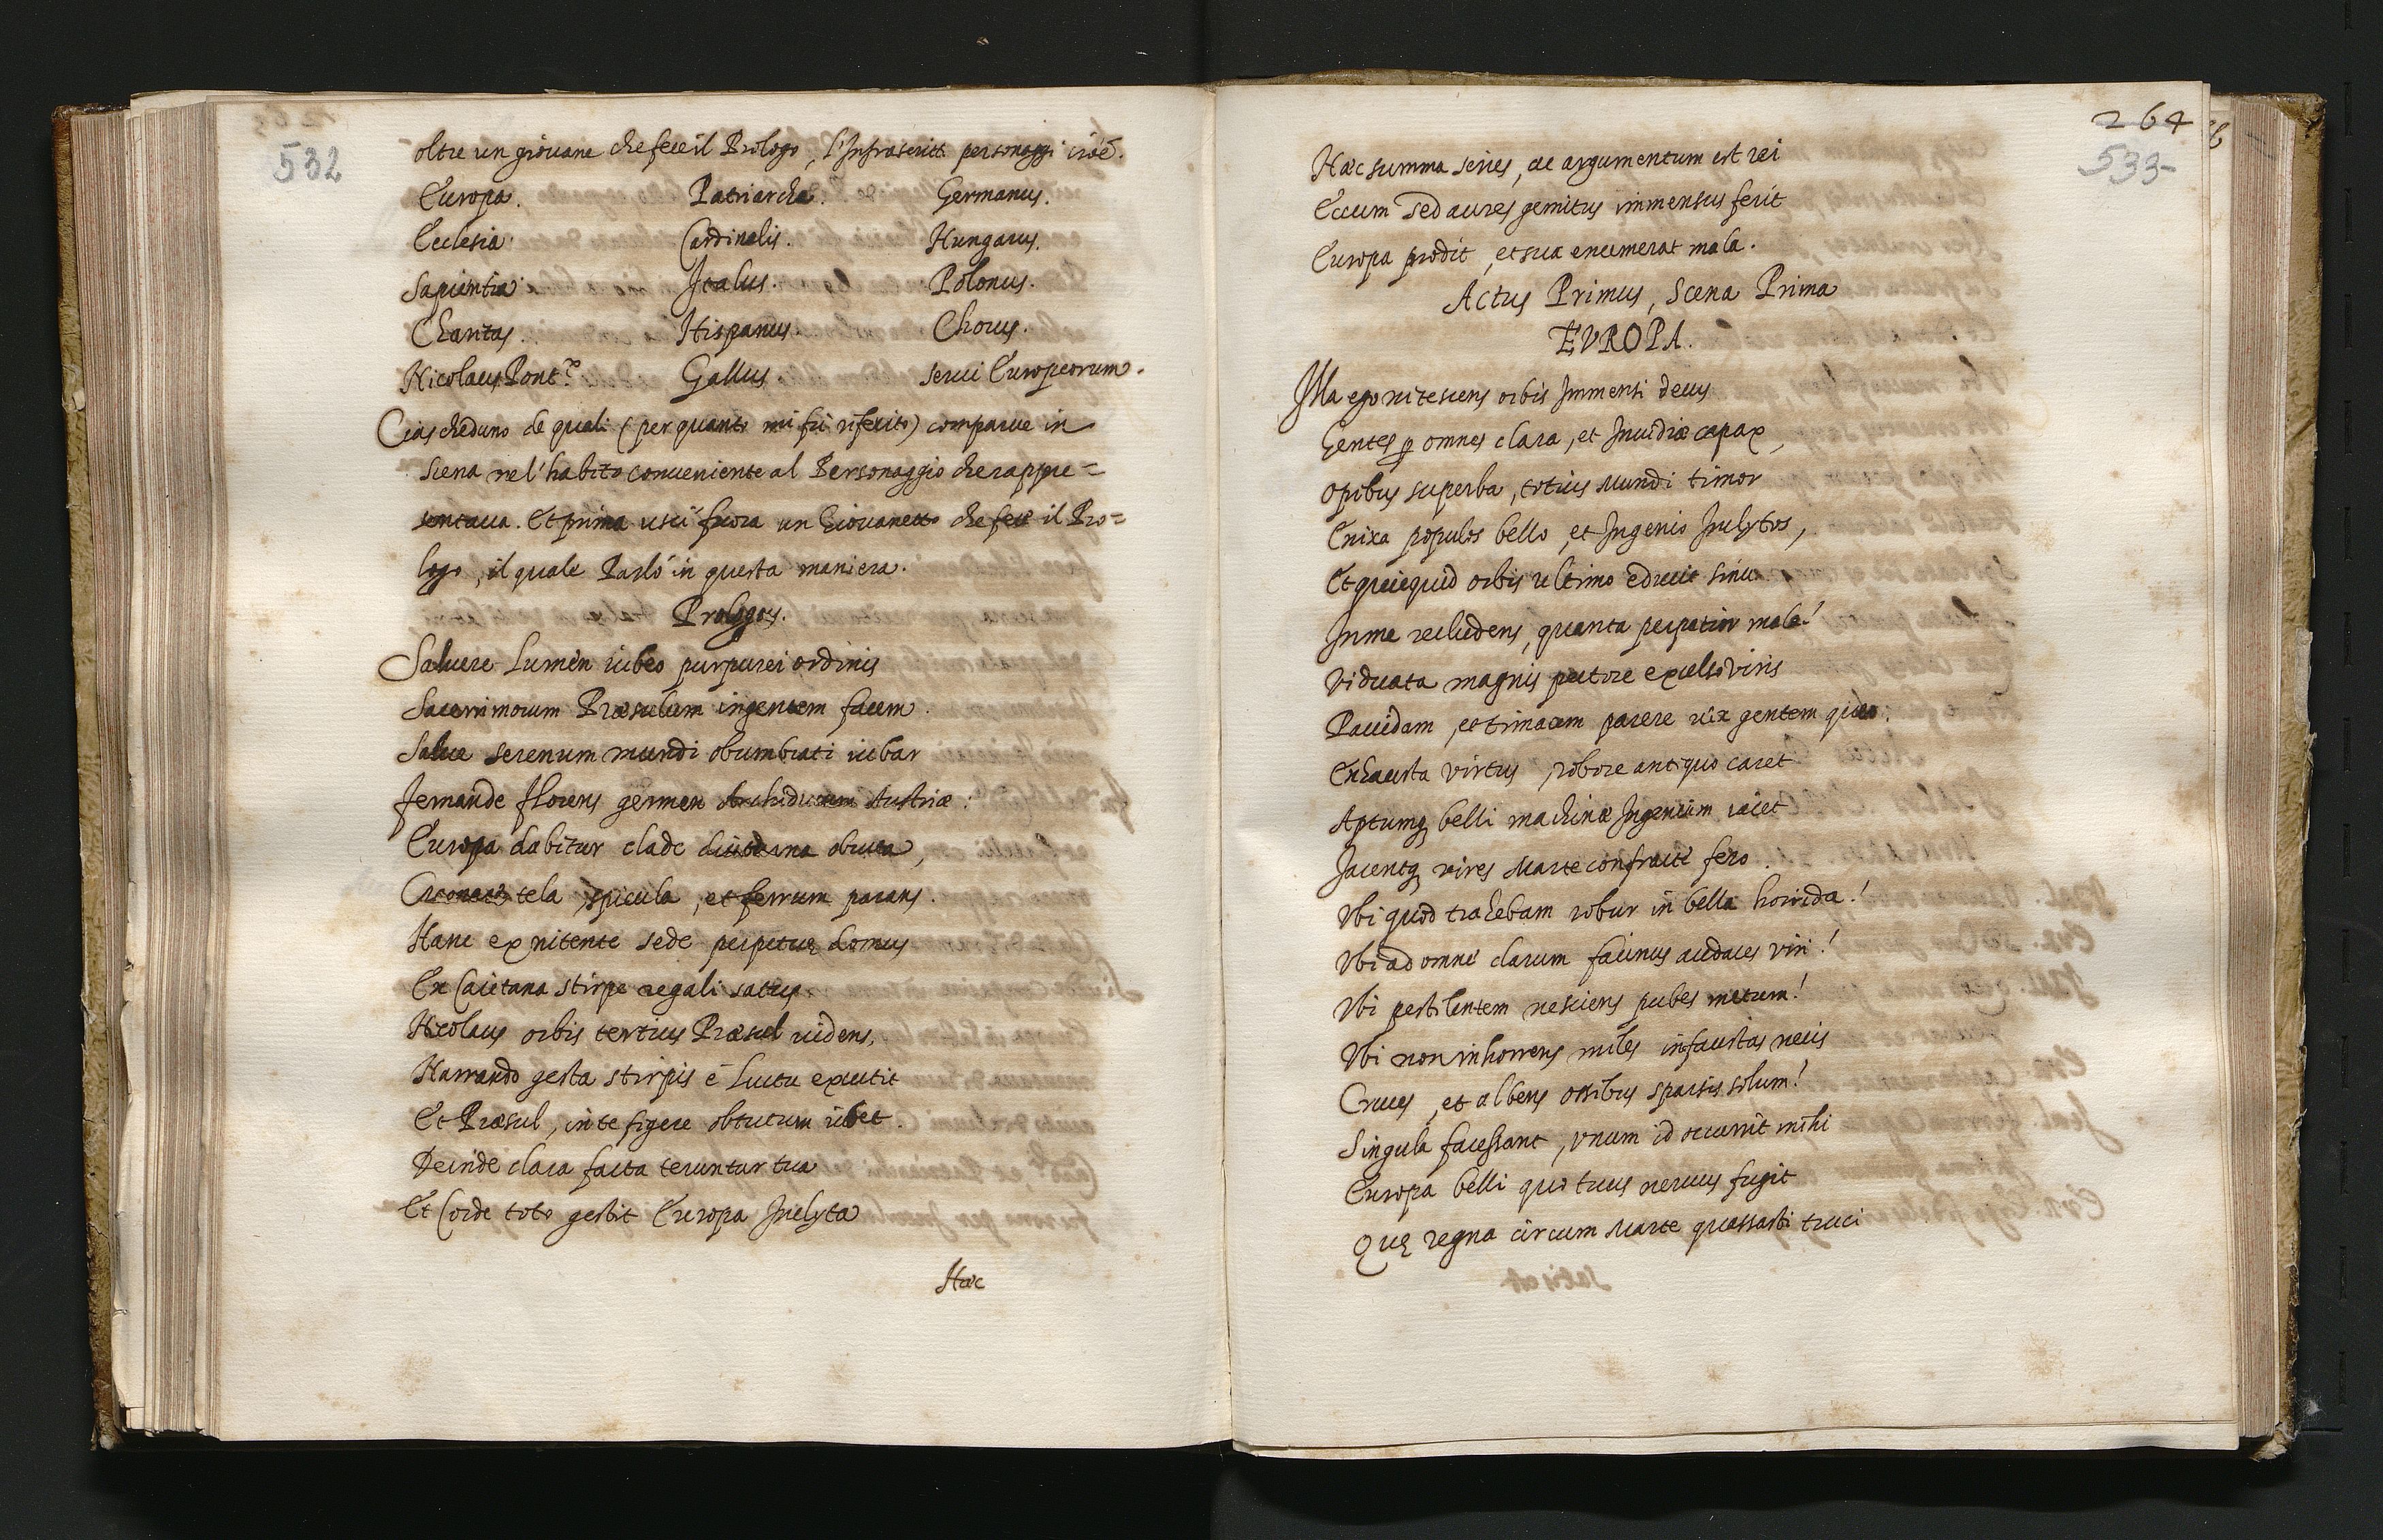 532
oltre un giovane che fece il Prologo, l'Infrascritti personaggi cioè.
Europa. Patriarcha. Germanus.
Ecclesia Cardinalis. Hungarus.
Sapientia Italus. Polonus.
Charitas. Hispanus. Chorus.
Nicolaus Pont. Gallus. serui Europeorum.
Ciascheduno de quali (per quanto mi fù riferito) comparue in
scena nel' habito conueniente al Personaggio che rappre=
sentaua. Et prima uscì fuora un Giouanetto che fece il Pro=
logo, il quale Parlò in questa maniera.
Prologus.
Saluere Lumen iubeo purpurei ordinis
Sacerrimorum Præsulum ingentem facem.
Salue serenum mundi obumbrati iubar
Fernande florens germen Archiducum Austriæ:
Europa dabitur clade diuturna obruta,
tela, spicula, et ferrum parans.
Hanc ex nitente sede perpetuę domus
En Caietana stirpe regali satus.
Nicolaus orbis tertius Præsul uidens,
Narrando gesta stirpis è Luctu excutit
Et Præsul, in te figere obtutum iubet.
Deinde clara facta teruntur tua
Et Corde toto gestit Europa Inclyta
Hæc
264
533
Hæc summa series, ac argumentum est rei
Eccum sed aures gemitus immensus ferit
Europa prodit, et sua enumerat mala.
Actus Primus, Scena Prima
EVROPA.
Illa ego nitescens orbis Immensi decus
Gentes p omnes clara, et Inuidiæ capax,
Opibus superba, totius Mundi timor
Enixa populos bello, et Ingenio Inclytos,
Et quicquid orbis ultimo educit sinu
In me recludens, quanta perpetior mala!
Viduata magnis pectore excelso viris
Pauidam, et timacem parere uix gentem queo.
Exhausta virtus, robore antiquo caret
Aptumq belli machinæ Ingenium iacet
Jacentq vires Marte confracti fero.
Vbi quod trahebam robur in bella horrida!
Vbi ad omne clarum facinus audaces viri!
Vbi pestilentem nesciens pubes metum!
Vbi non inhorrens miles infaustas necis
Cruces, et albens ossibus sparsis solum!
Singula facessant, vnum id occurrit mihi
Europa belli quo tuus neruus fugit
Quę regna circum Marte quassasti truci